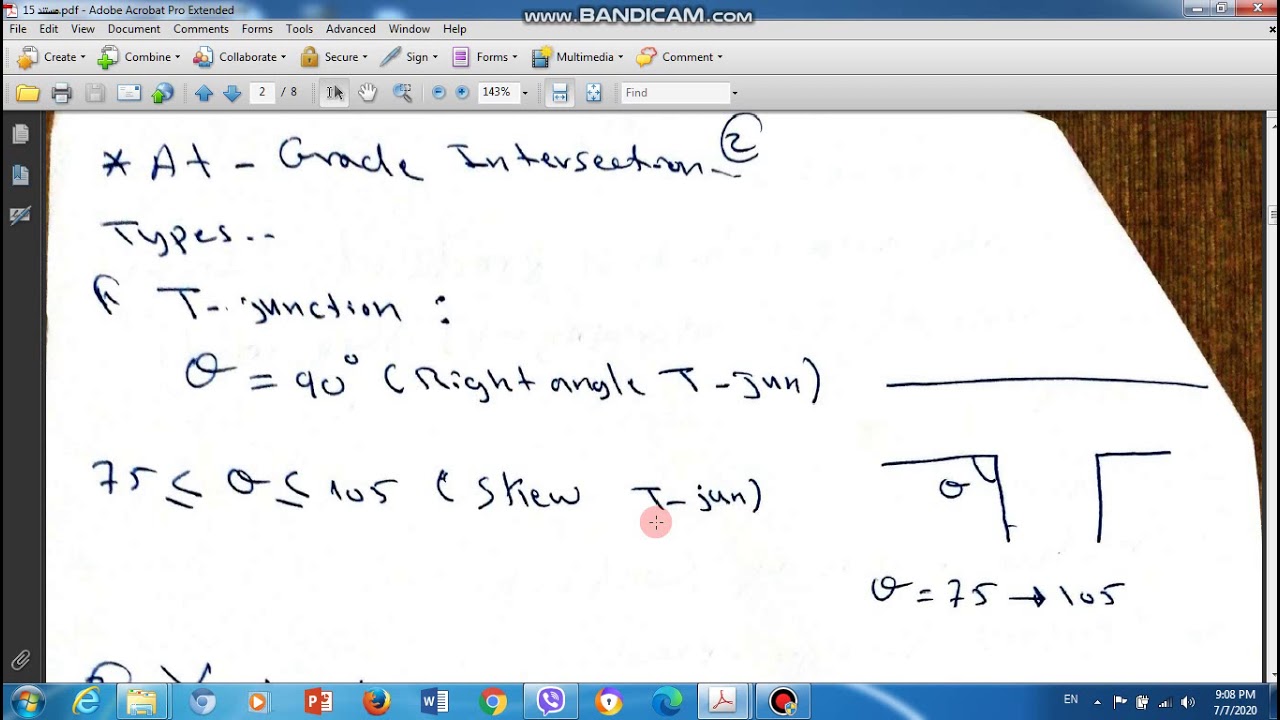 15 مستند.pdf - Adobe Acrobat Pro Extended
www.BANDICAM.com
File Edit View Document Comments Forms Tools Advanced Window Help
Create Combine Collaborate Secure Sign Forms Multimedia Comment
2 / 8 143% Find
* At - Grade Intersection- 2
Types..
T-junction :
θ = 90° (Right angle T-jun)
75 ≤ θ ≤ 105 (Skew T-jun)
θ
θ = 75 → 105
EN 9:08 PM
7/7/2020